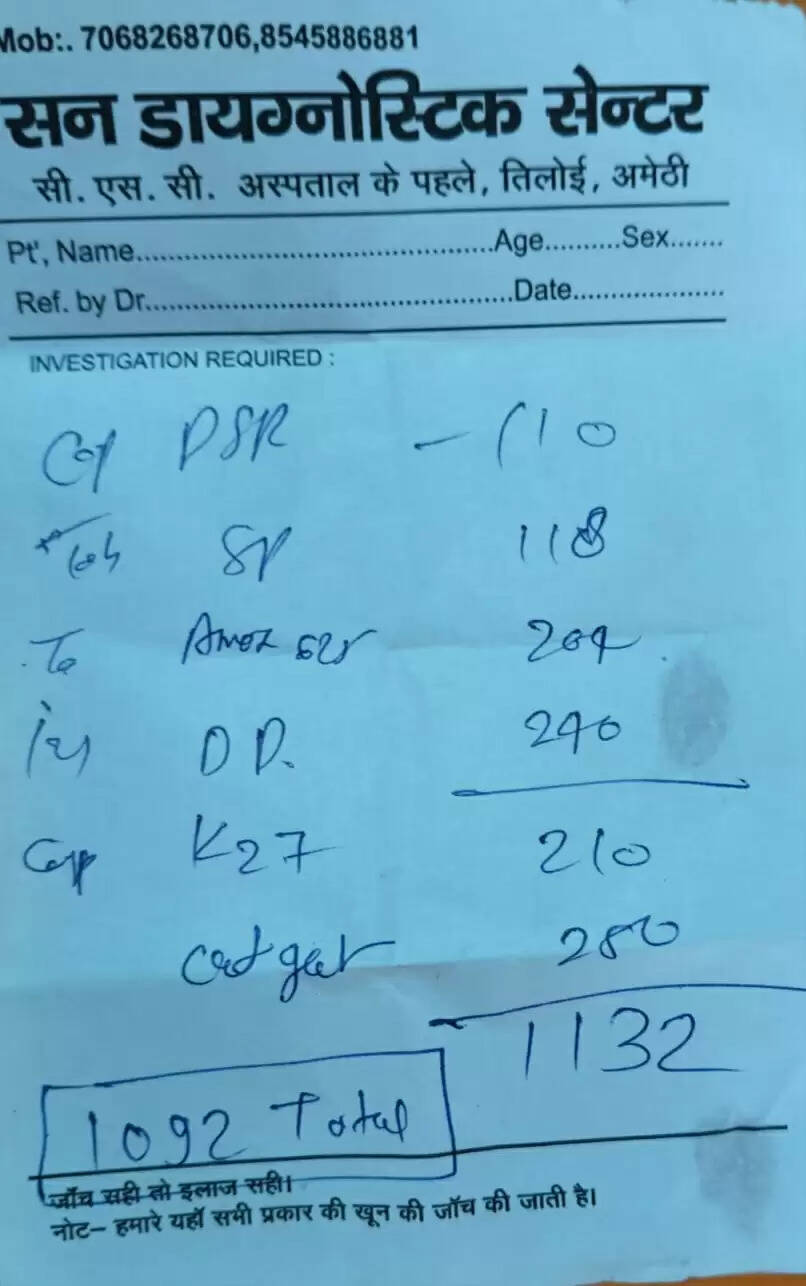 Mob:. 7068268706,8545886881
सन डायग्नोस्टिक सेन्टर
सी. एस. सी. अस्पताल के पहले, तिलोई, अमेठी
Pt', Name..........................................Age..........Sex.......
Ref. by Dr..............................................Date...................
INVESTIGATION REQUIRED :
DSR - 110
SP 118
Amox 625 204
DP. 240
K27 210
280
1132
1092 Total
जाँच सही तो इलाज सही।
नोट– हमारे यहाँ सभी प्रकार की खून की जाँच की जाती है।